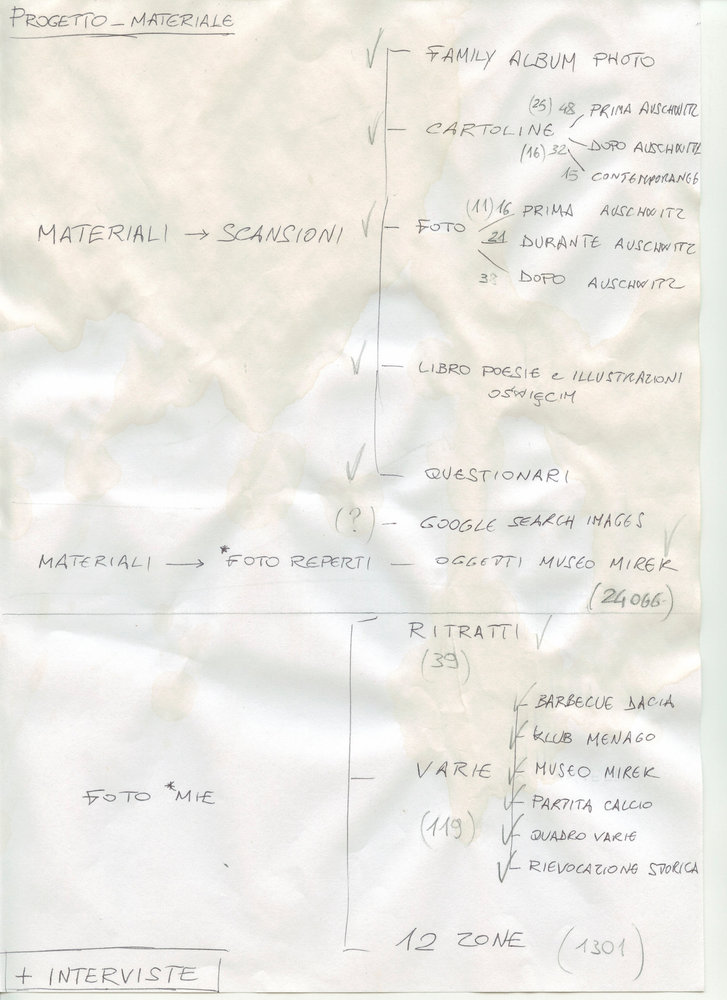 PROGETTO_MATERIALE
FAMILY ALBUM PHOTO
(25) 48 PRIMA AUSCHWITZ
CARTOLINE
(16) 32 DOPO AUSCHWITZ
15 CONTEMPORANEE
(11) 16 PRIMA AUSCHWITZ
MATERIALI → SCANSIONI
FOTO
21 DURANTE AUSCHWITZ
38 DOPO AUSCHWITZ
LIBRO POESIE e ILLUSTRAZIONI
OŚWIĘCIM
QUESTIONARI
(?) – GOOGLE SEARCH IMAGES
MATERIALI → *FOTO REPERTI — OGGETTI MUSEO MIREK
(24 OGG.)
RITRATTI
(39)
BARBECUE DACIA
KLUB MENAGO
VARIE
MUSEO MIREK
FOTO *MIE
PARTITA CALCIO
(119)
QUADRO VARIE
RIEVOCAZIONE STORICA
12 ZONE (1301)
+ INTERVISTE